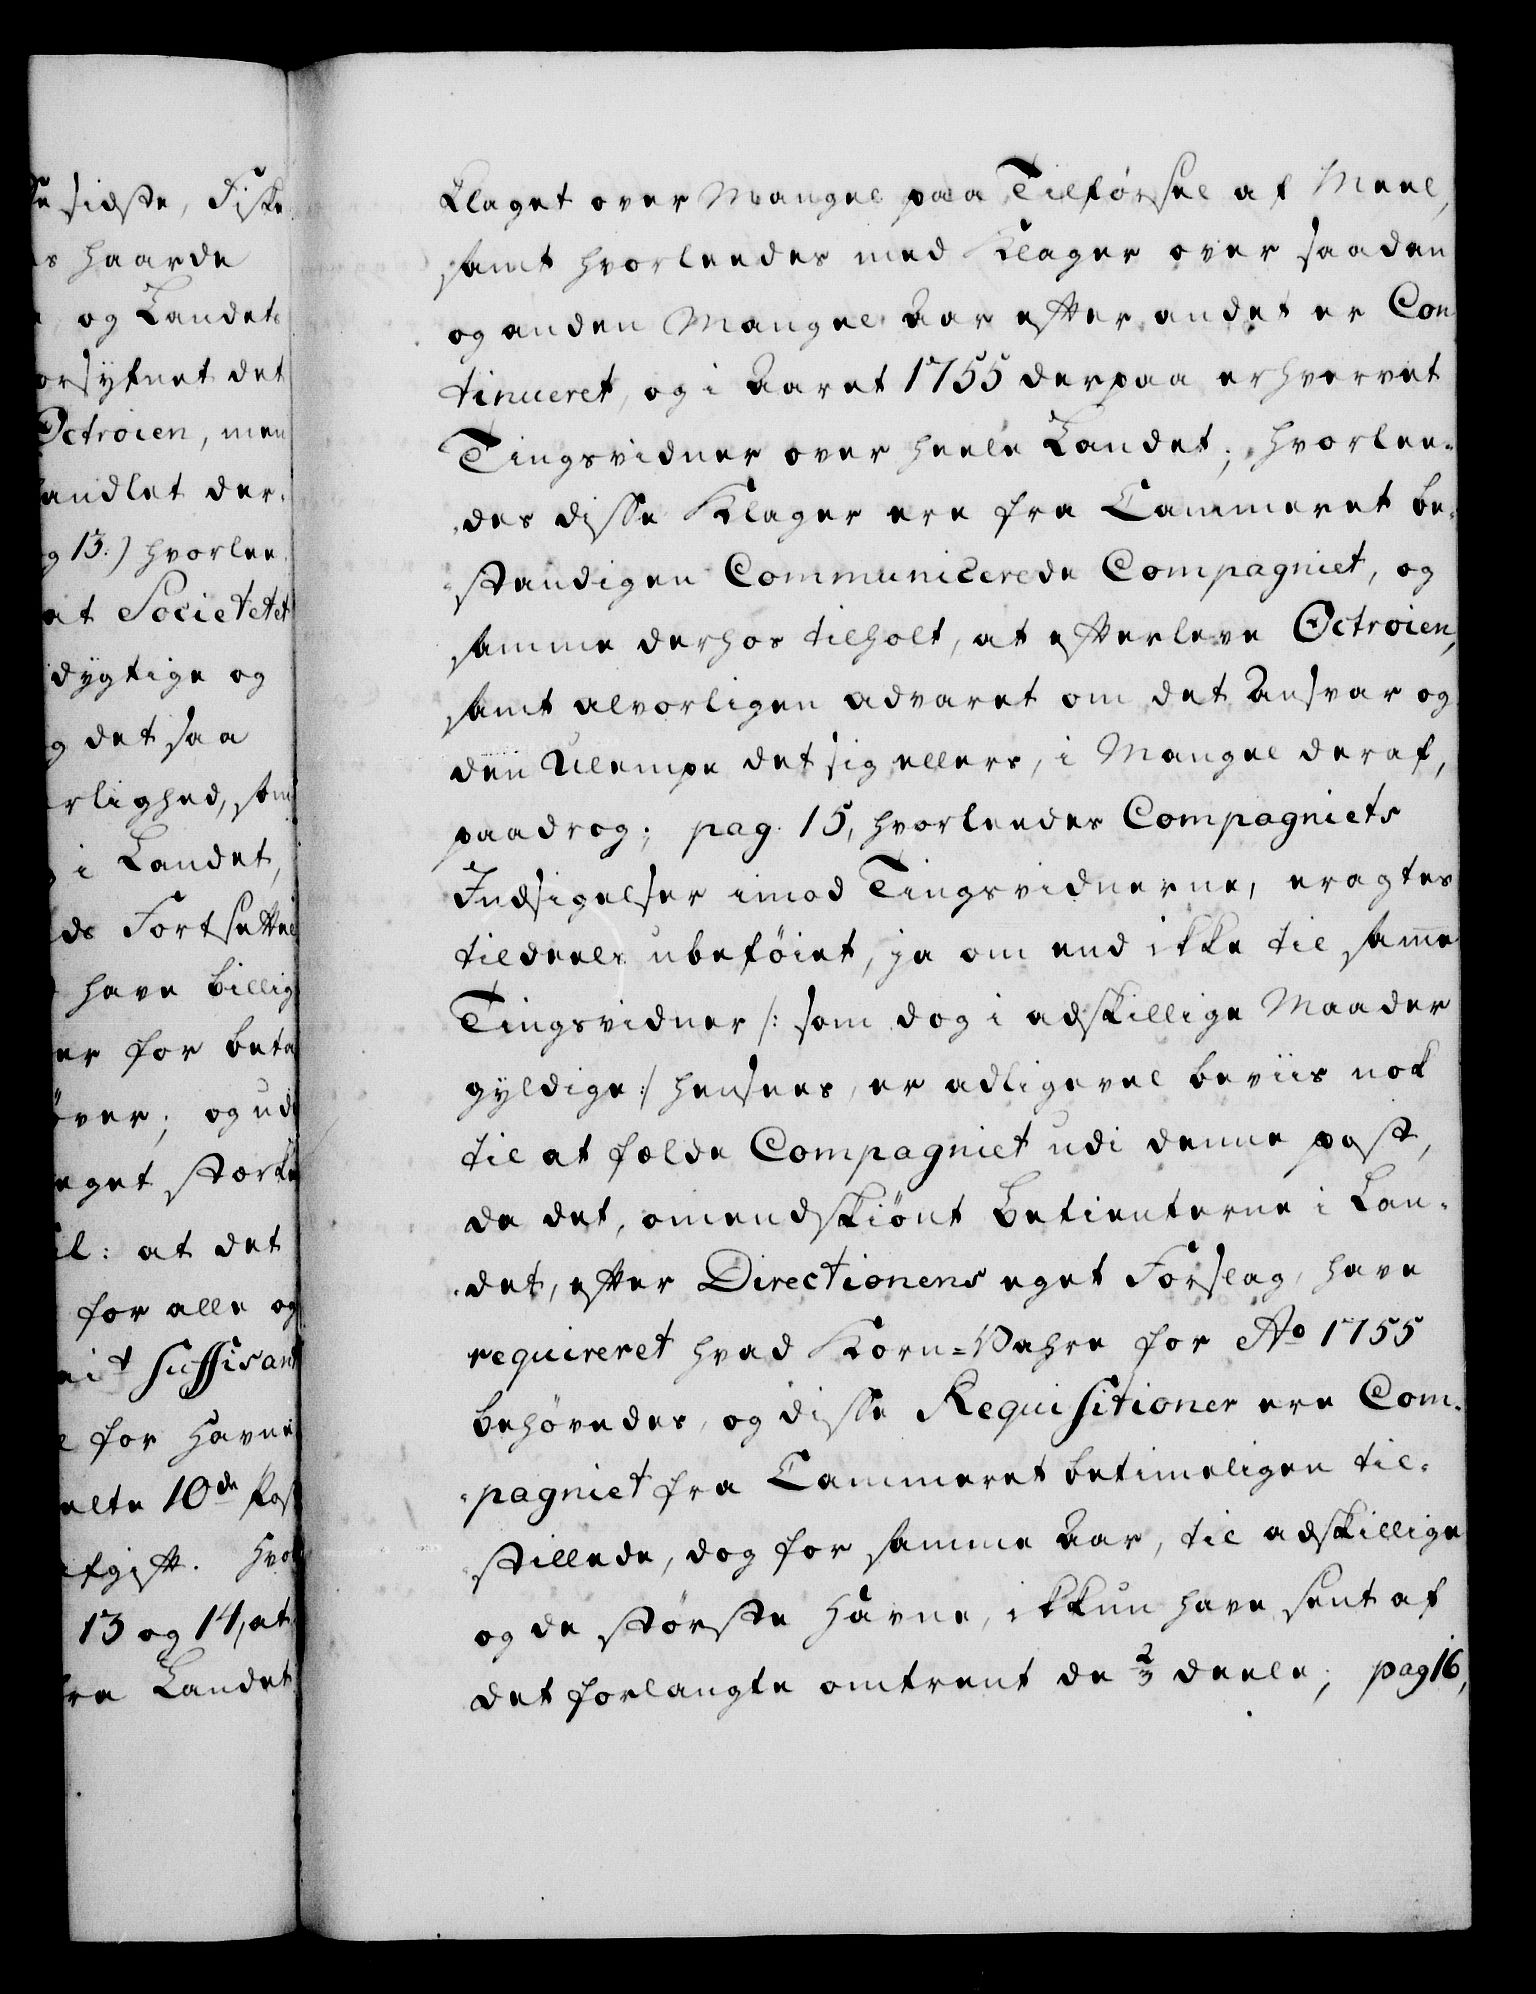 de sidste, Fiske
s haarde
e, og Landets
orsyfnet det
Octroien, men
andlet der-
g 13.) hvorlee
at Societetet
dygtige og
g det saa
rlighed, som
i Landet,
ds Fortsættel
have billig
er for beta
øver; og udi
eget stærke
il: at det
for alle og
ei t suffisant
e for Havne
elte 10de Post
fgift. hvo
13 og 14, at
fra Landet
klaget over Mangel paa Tilførsel af Meel,
samt hvorleedes med Klager over saaden
og anden Mangel Aar efter andet er Con
tinueret, og i Aaret 1755 derpaa erhvervet
Tingsvidner over heele Landet; hvorlee-
des disse Klager ere fra Cammeret be-
standigen Communicerede Compagniet, og
samme derhos tilholt, at efterleve Octroien,
samt alvorligen advaret om det Ansvar og
den Ulempe det sig ellers, i Mangel deraf,
paadrog; pag. 15, hvorleedes Compagniets
Indsigelser imod Tingsvidnerne, eragtes
tildeels ubeføiet, ja om end ikke til samme
Tingsvidner /: som dog i adskillige Maader
gyldige :/ hensees, er alligevel beviis nok
til at fælde Compagniet udi denne post,
da det, omendskiönt Betienterne i Lan-
det, efter Directionens eget Forslag, have
requireret hvad Korn=Vahre for Ao 1755
behövedes, og disse Requisitioner ere Com-
pagniet fra Cammeret betimeligen til-
stillede, dog for samme Aar, til adskillige
og de største Havne, ikkun have sent af
det forlangte omtrent de 2/3 deele; pag 16,